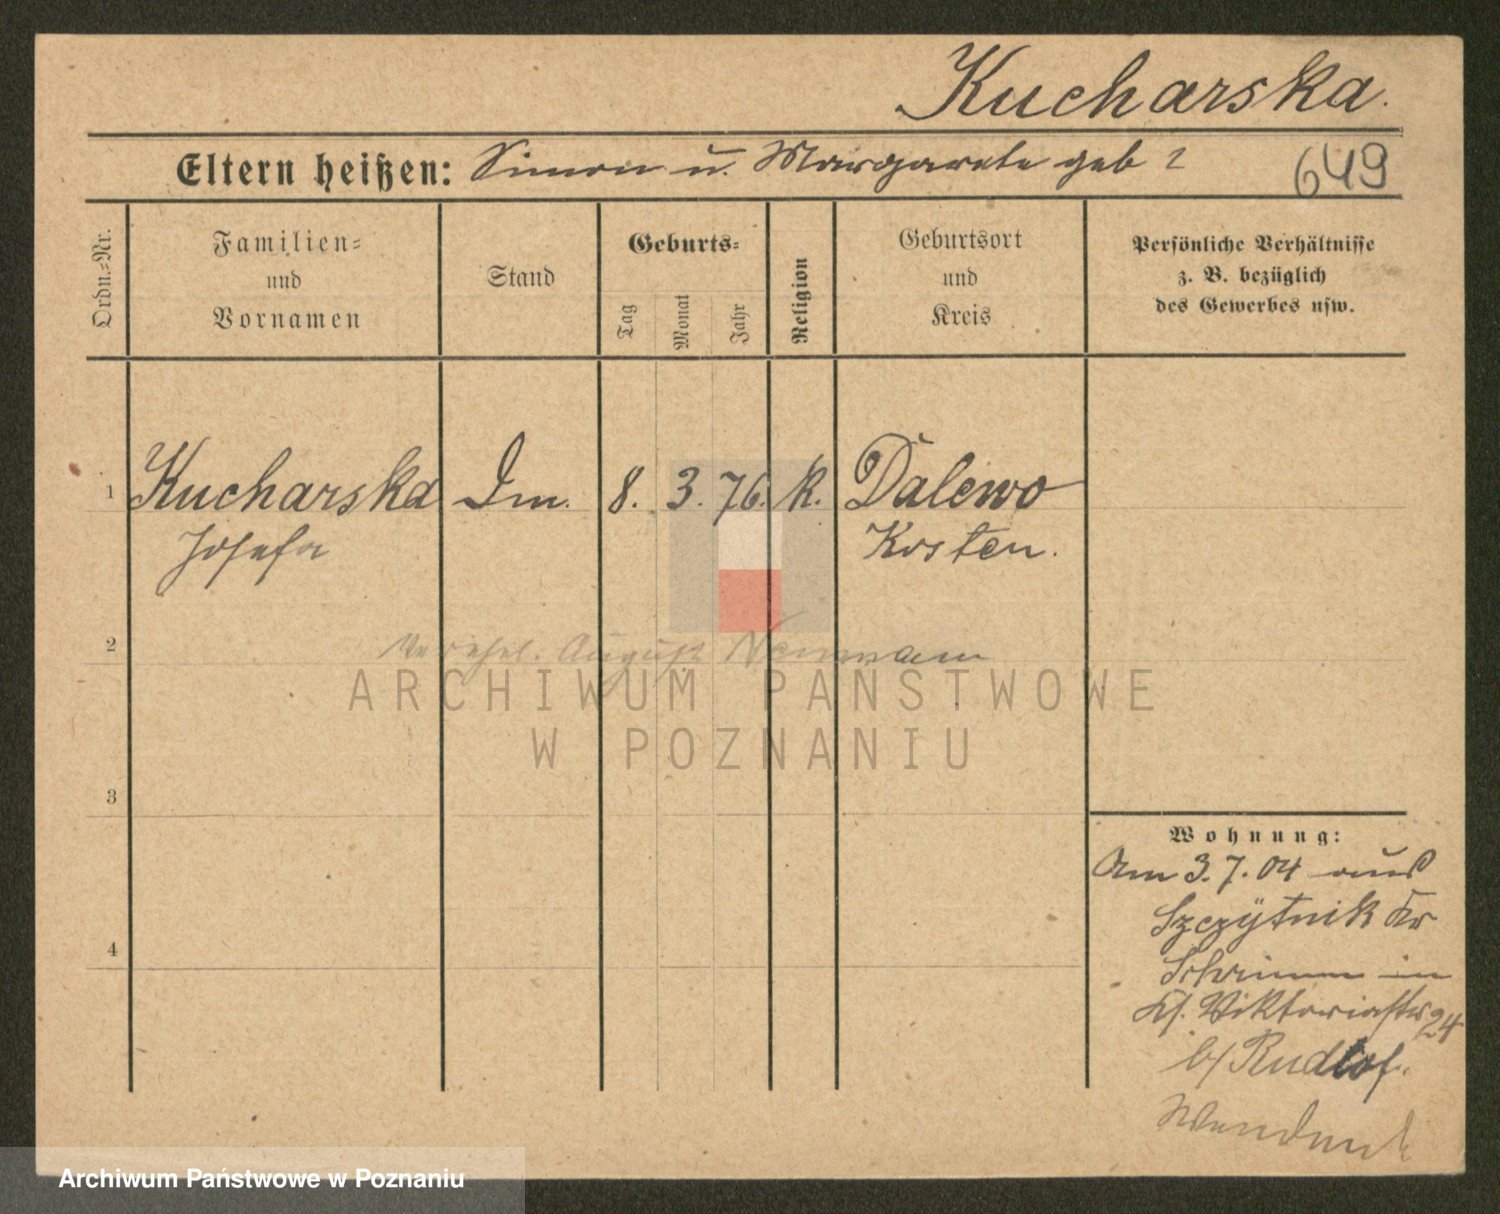 Kucharska.
Eltern heißen: Simon u. Margarete geb ?
649
Ordn.=Nr.
Familien=
und
Vornamen
Stand
Geburts=
Tag
Monat
Jahr
Religion
Geburtsort
und
Kreis
Persönliche Verhältnisse
z. B. bezüglich
des Gewerbes usw.
1 Kucharska Dm. 8. 3. 76. K. Dalewo
Josefa Kosten.
2
verehel. August Neumann
3
4
Wohnung:
Am 3.7.04 aus
Szczÿtnik Kr
Schrimm in
Viktoriastr 24
b/ Rudlof.
ARCHIWUM PAŃSTWOWE
W POZNANIU
Archiwum Państwowe w Poznaniu